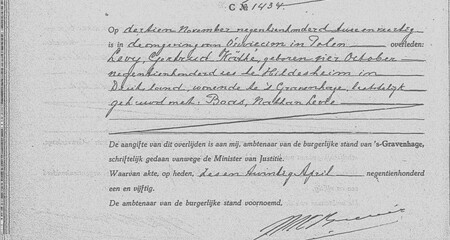 C № 1434.
Op dertien November negentienhonderd twee en veertig
is in de omgeving van Oswiecim in Polen overleden:
Levy, Gertrud Käthe, geboren vier October
negentienhonderd zes te Hildesheim in
Duitschland, wonende te 's Gravenhage, laatstelijk
gehuwd met: Baas, Nathan Levie
De aangifte van dit overlijden is aan mij, ambtenaar van de burgerlijke stand van 's-Gravenhage,
schriftelijk gedaan vanwege de Minister van Justitie.
Waarvan akte, op heden, zes en twintig April negentienhonderd
een en vijftig.
De ambtenaar van de burgerlijke stand voornoemd.